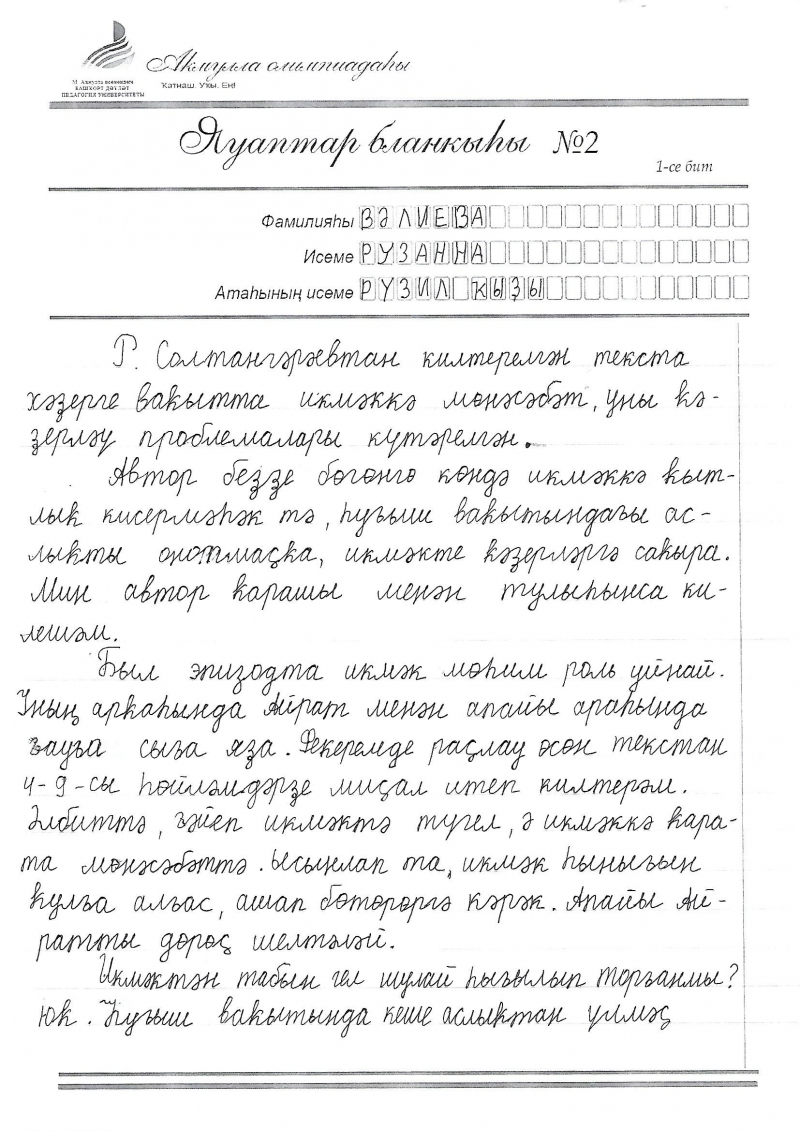 М. Акмулла исемендәге
БАШҠОРТ ДӘҮЛӘТ
ПЕДАГОГИЯ УНИВЕРСИТЕТЫ
Акмулла олимпиадаһы
Ҡатнаш. Уҡы. Ең!
Яуаптар бланкыһы №2
1-се бит
Фамилияһы ВӘЛИЕВА
Исеме РУЗАННА
Атаһының исеме РУЗИЛ ҠЫҘЫ
Р. Солтангәрәевтан килтерелгән текста
хәҙерге ваҡытта икмәккә мөнәсәбәт, уны ҡә-
ҙерләү проблемалары күтәрелгән.
Автор беҙҙе бөгөнгө көндә икмәккә ҡыт-
лыҡ кисермәһәк тә, һуғыш ваҡытындағы ас-
лыҡты онотмаҫҡа, икмәкте ҡәҙерләргә саҡыра.
Мин автор ҡарашы менән тулыһынса ки-
лешәм.
Был эпизодта икмәк мөһим роль уйнай.
Уның арҡаһында Айрат менән апайы араһында
ғауға сыға яза. Фекеремде раҫлау өсөн текстан
4-9-сы һөйләмдәрҙе миҫал итеп килтерәм.
Әлбиттә, ғәйеп икмәктә түгел, ә икмәккә ҡара-
та мөнәсәбәттә. Ысынлап та, икмәк һынығын
ҡулға алғас, ашап бөтөрөргә кәрәк. Апайы Ай-
ратты дөрөҫ шелтәләй.
Икмәктән табын гел шулай һығылып торғанмы?
Юҡ. Һуғыш ваҡытында кеше аслыҡтан үлмәҫ